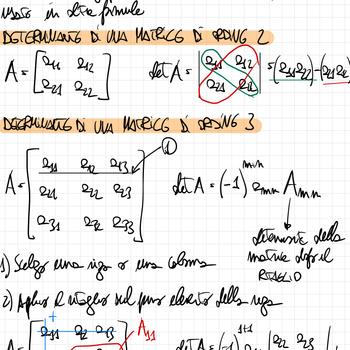 usato in altre formule
DETERMINANTE DI UNA MATRICE DI ORDINE 2
A = [a11 a12 a21 a22] det A = |a11 a12 a21 a22| = (a11 a22) - (a21 a12
DETERMINANTE DI UNA MATRICE DI ORDINE 3
①
A = [a11 a12 a13 a21 a22 a23 a31 a32 a33] det A = (-1)^m+n a_mn A_mn
determinante della
matrice dopo il
TAGLIO
1) Scelgo una riga o una colonna
2) Applico il taglio sul primo elemento della riga
+
A = [a11 a12 a13 A11 det A = (-1)^1+1 |a22 a23